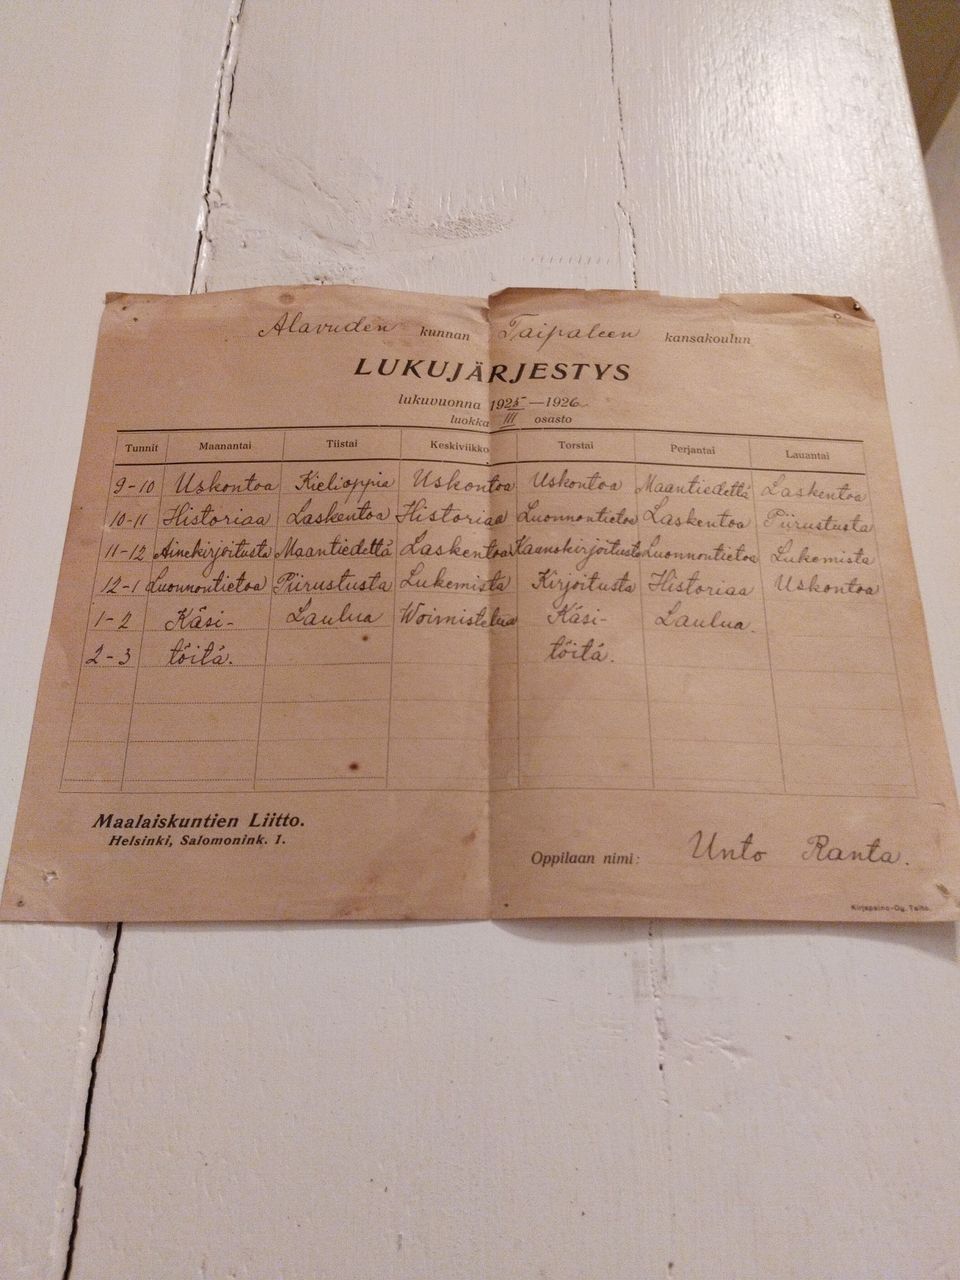 Alavuden kunnan Taipaleen kansakoulun
LUKUJÄRJESTYS
lukuvuonna 1925—1926
luokka III osasto
Tunnit Maanantai Tiistai Keskiviikko Torstai Perjantai Lauantai
9-10 Uskontoa Kielioppia Uskontoa Uskontoa Maantiedettä Laskentoa
10-11 Historiaa Laskentoa Historiaa Luonnontietoa Laskentoa Piirustusta
11-12 Ainekirjoitusta Maantiedettä Laskentoa Kaunokirjoitusta Luonnontietoa Lukemista
12-1 Luonnontietoa Piirustusta Lukemista Kirjoitusta Historiaa Uskontoa
1-2 Käsi- Laulua Woimistelua Käsi- Laulua.
2-3 töitä. töitä.
Maalaiskuntien Liitto.
Helsinki, Salomonink. 1.
Oppilaan nimi: Unto Ranta.
Kirjapaino-Oy. Taito.